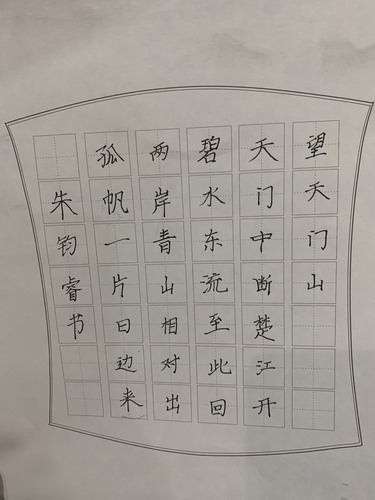 望天门山
天门中断楚江开
碧水东流至此回
两岸青山相对出
孤帆一片日边来
朱钧睿书